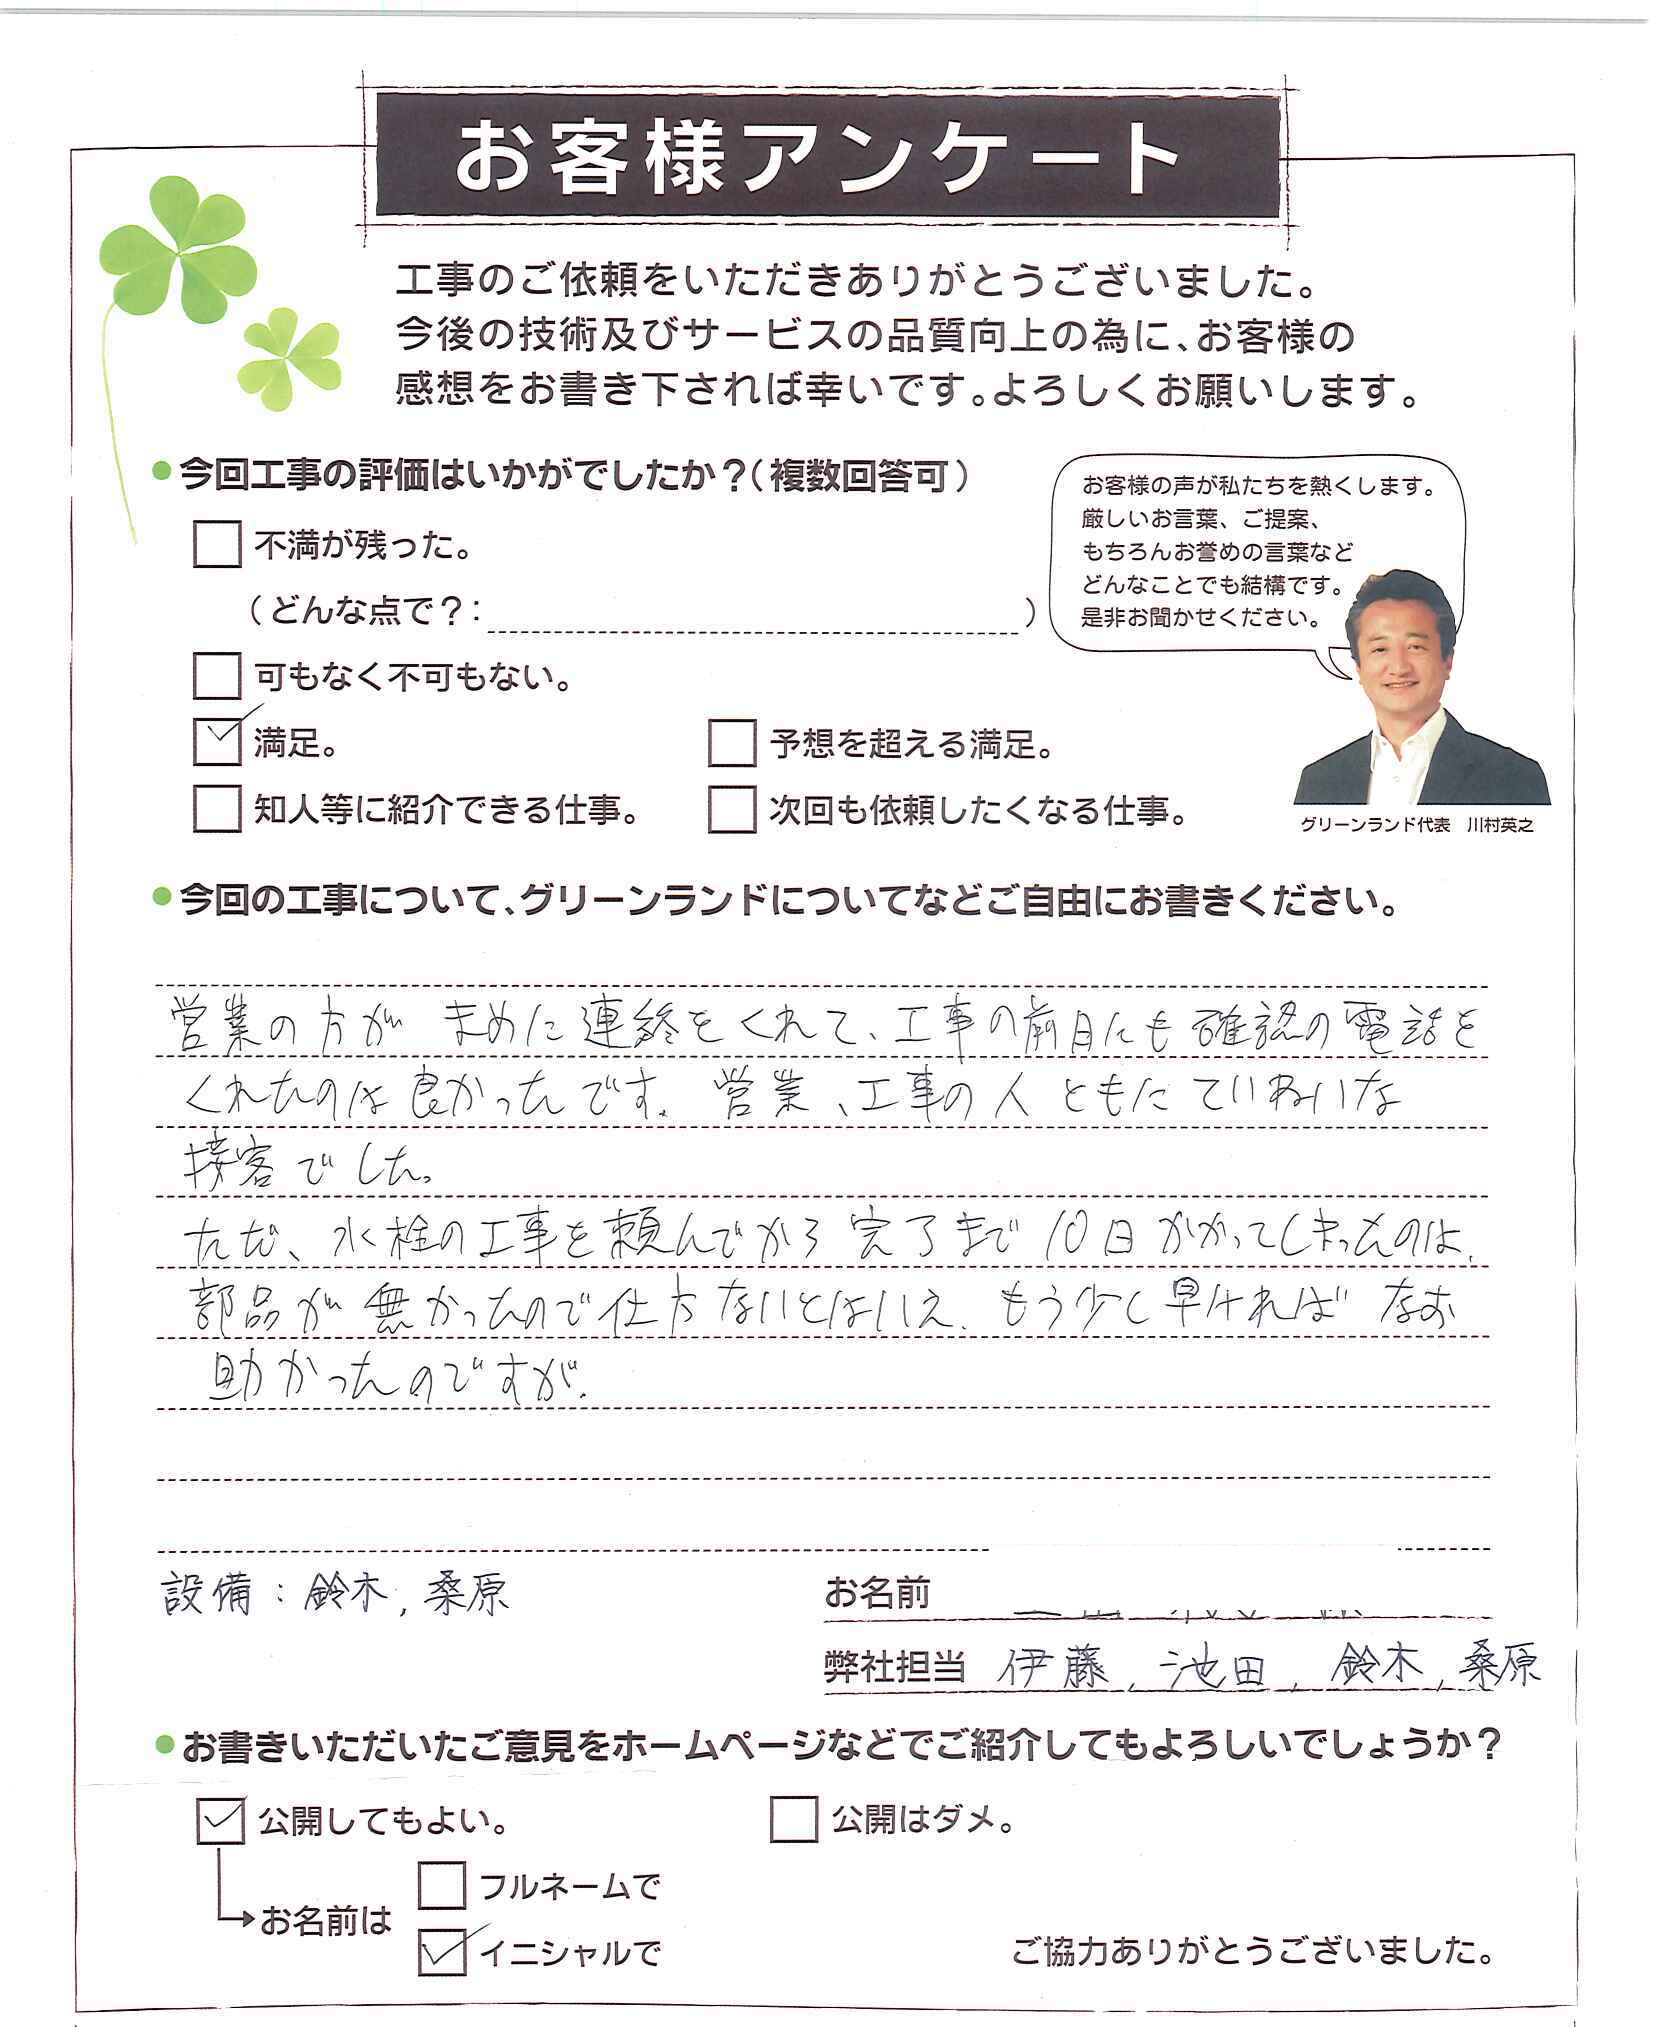 お客様アンケート
工事のご依頼をいただきありがとうございました。
今後の技術及びサービスの品質向上の為に、お客様の
感想をお書き下されば幸いです。よろしくお願いします。
●今回工事の評価はいかがでしたか？(複数回答可)
不満が残った。
(どんな点で？: )
可もなく不可もない。
満足。
予想を超える満足。
知人等に紹介できる仕事。
次回も依頼したくなる仕事。
お客様の声が私たちを熱くします。
厳しいお言葉、ご提案、
もちろんお誉めの言葉など
どんなことでも結構です。
是非お聞かせください。
グリーンランド代表 川村英之
●今回の工事について、グリーンランドについてなどご自由にお書きください。
営業の方が まめに連絡をくれて、工事の前日にも確認の電話を
くれたのは良かったです。営業、工事の人ともにていねいな
接客でした。
ただ、水栓の工事を頼んでから完了まで10日かかってしまったのは、
部品が無かったので仕方ないとはいえ、もう少し早ければなお
助かったのですが。
設備：鈴木, 桑原
お名前
弊社担当 伊藤, 池田, 鈴木, 桑原
●お書きいただいたご意見をホームページなどでご紹介してもよろしいでしょうか？
公開してもよい。
公開はダメ。
お名前は
フルネームで
イニシャルで
ご協力ありがとうございました。